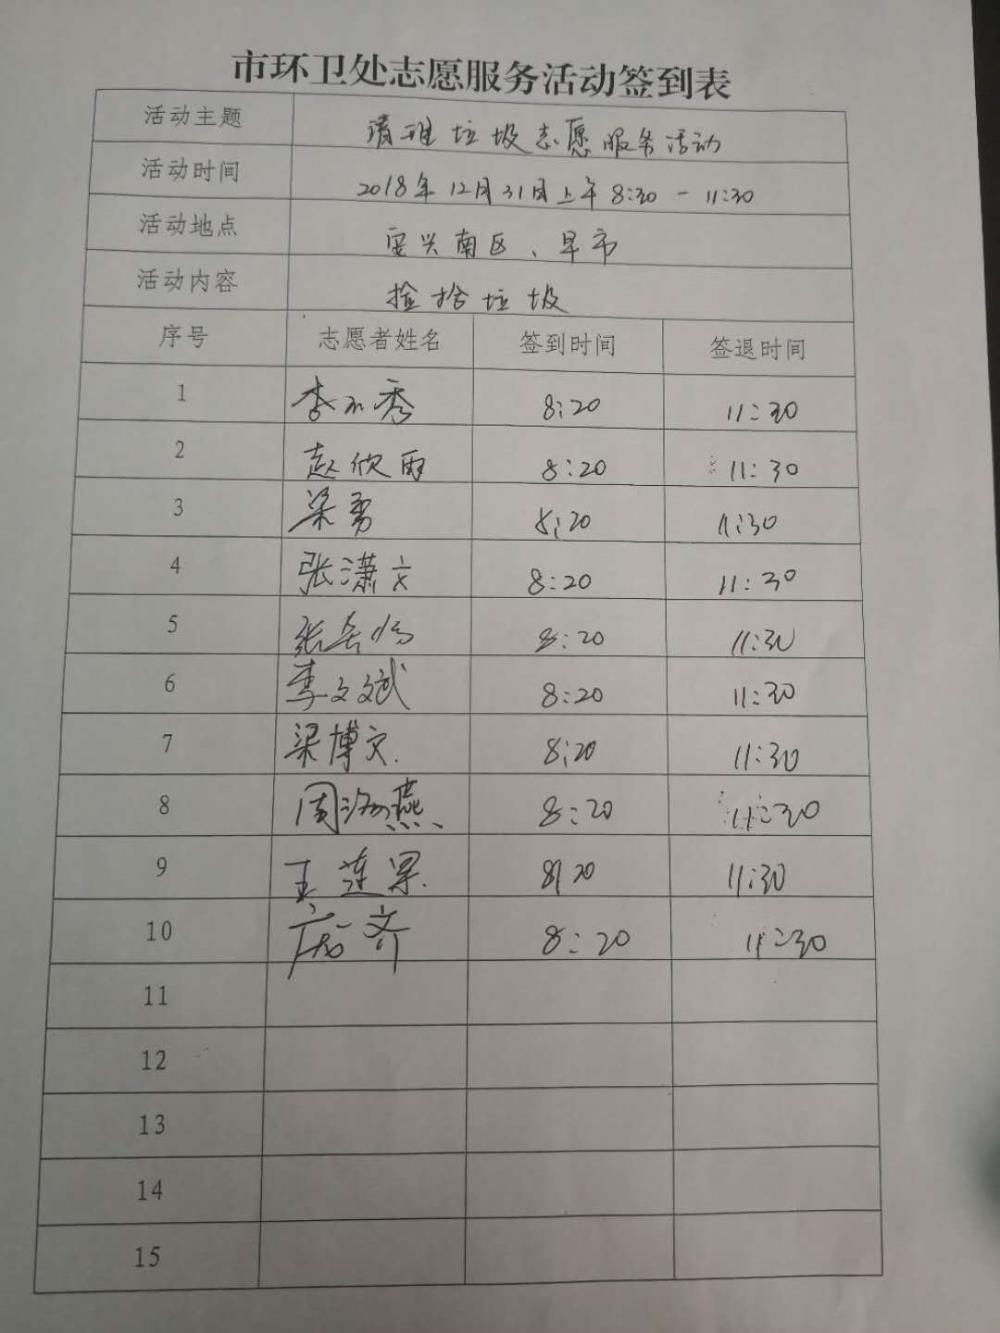 市环卫处志愿服务活动签到表
活动主题 清理垃圾志愿服务活动
活动时间 2018年12月31日上午8:30-11:30
活动地点 宝兴南区、早市
活动内容 捡拾垃圾
序号 志愿者姓名 签到时间 签退时间
1 李 秀 8:20 11:30
2 赵欣雨 8:20 11:30
3 梁勇 8:20 11:30
4 张潇文 8:20 11:30
5 张 8:20 11:30
6 李文斌 8:20 11:30
7 梁博文. 8:20 11:30
8 周 燕 8:20 11:30
9 王莲果. 8:20 11:30
10 齐 8:20 11:30
11
12
13
14
15